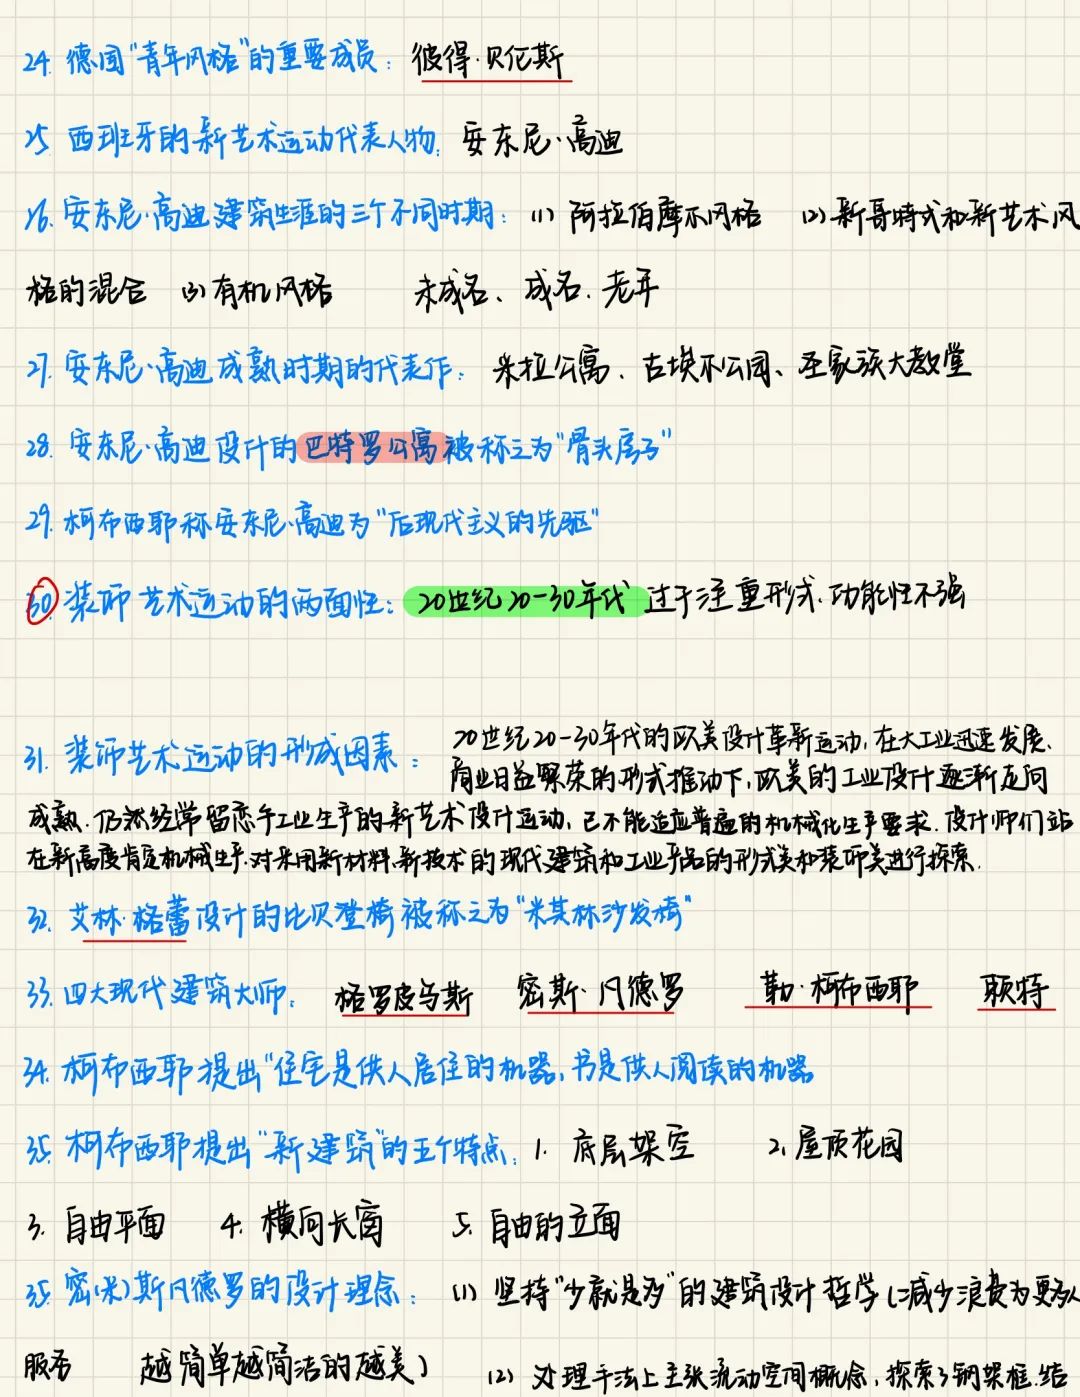 24. 德国"青年风格"的重要成员: 彼得·贝伦斯
25. 西班牙的新艺术运动代表人物: 安东尼·高迪
26. 安东尼·高迪建筑生涯的三个不同时期: (1) 阿拉伯摩尔风格 (2) 新哥特式和新艺术风
格的混合 (3) 有机风格 未成名、成名、老年
27. 安东尼·高迪成熟时期的代表作: 米拉公寓、古埃尔公园、圣家族大教堂
28. 安东尼·高迪设计的巴特罗公寓被称之为"骨头房子"
29. 柯布西耶称安东尼·高迪为"后现代主义的先驱"
30. 装饰艺术运动的两面性: 20世纪20-30年代 过于注重形式、功能性不强
31. 装饰艺术运动的形成因素: 20世纪20-30年代的欧美设计革新运动,在大工业迅速发展、
商业日益繁荣的形式推动下,欧美的工业设计逐渐走向
成熟.仍然经常留恋手工业生产的新艺术设计运动,已不能适应普遍的机械化生产要求.设计师们站
在新高度肯定机械生产.对采用新材料、新技术的现代建筑和工业产品的形式美和装饰美进行探索.
32. 艾林·格蕾设计的比贝登椅被称之为"米其林沙发椅"
33. 四大现代建筑大师: 格罗皮乌斯 密斯·凡德罗 勒·柯布西耶 赖特
34. 柯布西耶提出"住宅是供人居住的机器,书是供人阅读的机器
35. 柯布西耶提出"新建筑"的五个特点: 1. 底层架空 2. 屋顶花园
3. 自由平面 4. 横向长窗 5. 自由的立面
35. 密(米)斯凡德罗的设计理念: (1) 坚持"少就是多"的建筑设计哲学(减少浪费为更多人
服务 越简单越简洁的越美)
(2) 处理手法上主张流动空间概念,探索了钢架框.结